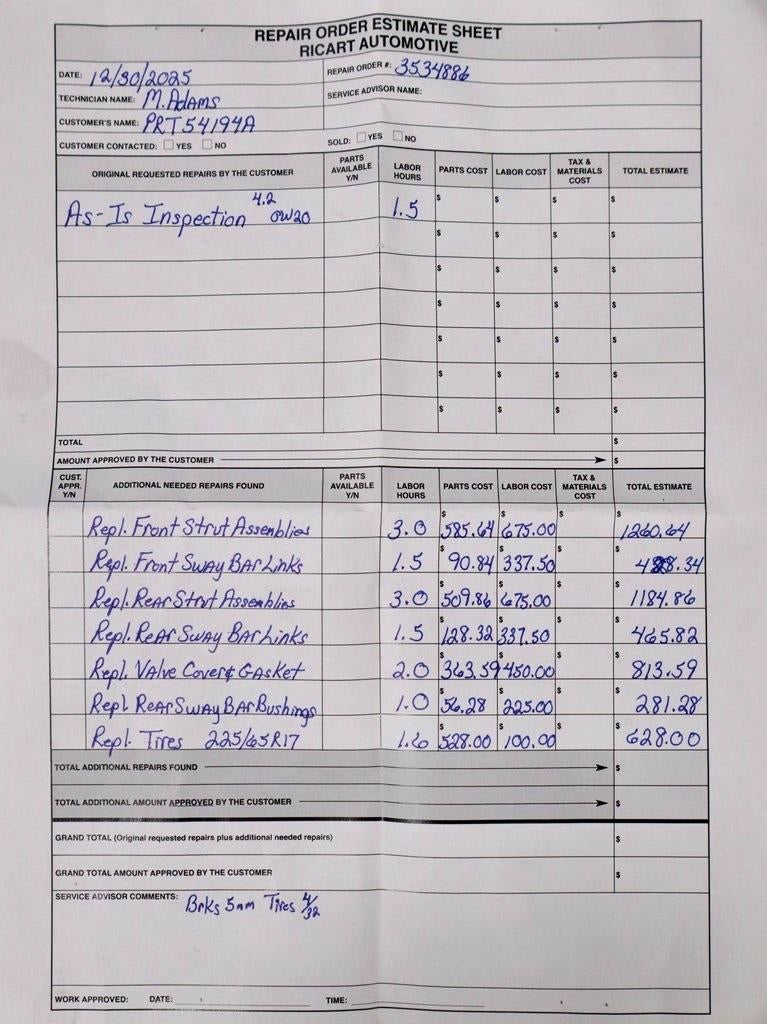 REPAIR ORDER ESTIMATE SHEET
RICART AUTOMOTIVE
DATE: 12/30/2025 REPAIR ORDER #: 3534886
TECHNICIAN NAME: M. Adams SERVICE ADVISOR NAME:
CUSTOMER'S NAME: PRT54194A
CUSTOMER CONTACTED: YES NO SOLD: YES NO
ORIGINAL REQUESTED REPAIRS BY THE CUSTOMER PARTS AVAILABLE Y/N LABOR HOURS PARTS COST LABOR COST TAX & MATERIALS COST TOTAL ESTIMATE
As-Is Inspection 4.2 0W20 1.5 $ $ $ $
$ $ $ $
$ $ $ $
$ $ $ $
$ $ $ $
$ $ $ $
$ $ $ $
TOTAL $
AMOUNT APPROVED BY THE CUSTOMER $
CUST. APPR. Y/N ADDITIONAL NEEDED REPAIRS FOUND PARTS AVAILABLE Y/N LABOR HOURS PARTS COST LABOR COST TAX & MATERIALS COST TOTAL ESTIMATE
Repl. Front Strut Assemblies 3.0 $585.64 $675.00 $ $1260.64
Repl. Front Sway Bar Links 1.5 $90.84 $337.50 $ $428.34
Repl. Rear Strut Assemblies 3.0 $509.86 $675.00 $ $1184.86
Repl. Rear Sway Bar Links 1.5 $128.32 $337.50 $ $465.82
Repl. Valve Cover & Gasket 2.0 $363.59 $450.00 $ $813.59
Repl Rear Sway Bar Bushings 1.0 $56.28 $225.00 $ $281.28
Repl. Tires 225/65R17 1.6 $528.00 $100.00 $ $628.00
TOTAL ADDITIONAL REPAIRS FOUND $
TOTAL ADDITIONAL AMOUNT APPROVED BY THE CUSTOMER $
GRAND TOTAL (Original requested repairs plus additional needed repairs) $
GRAND TOTAL AMOUNT APPROVED BY THE CUSTOMER $
SERVICE ADVISOR COMMENTS: Brks 5mm Tires 4/32
WORK APPROVED: DATE: TIME: